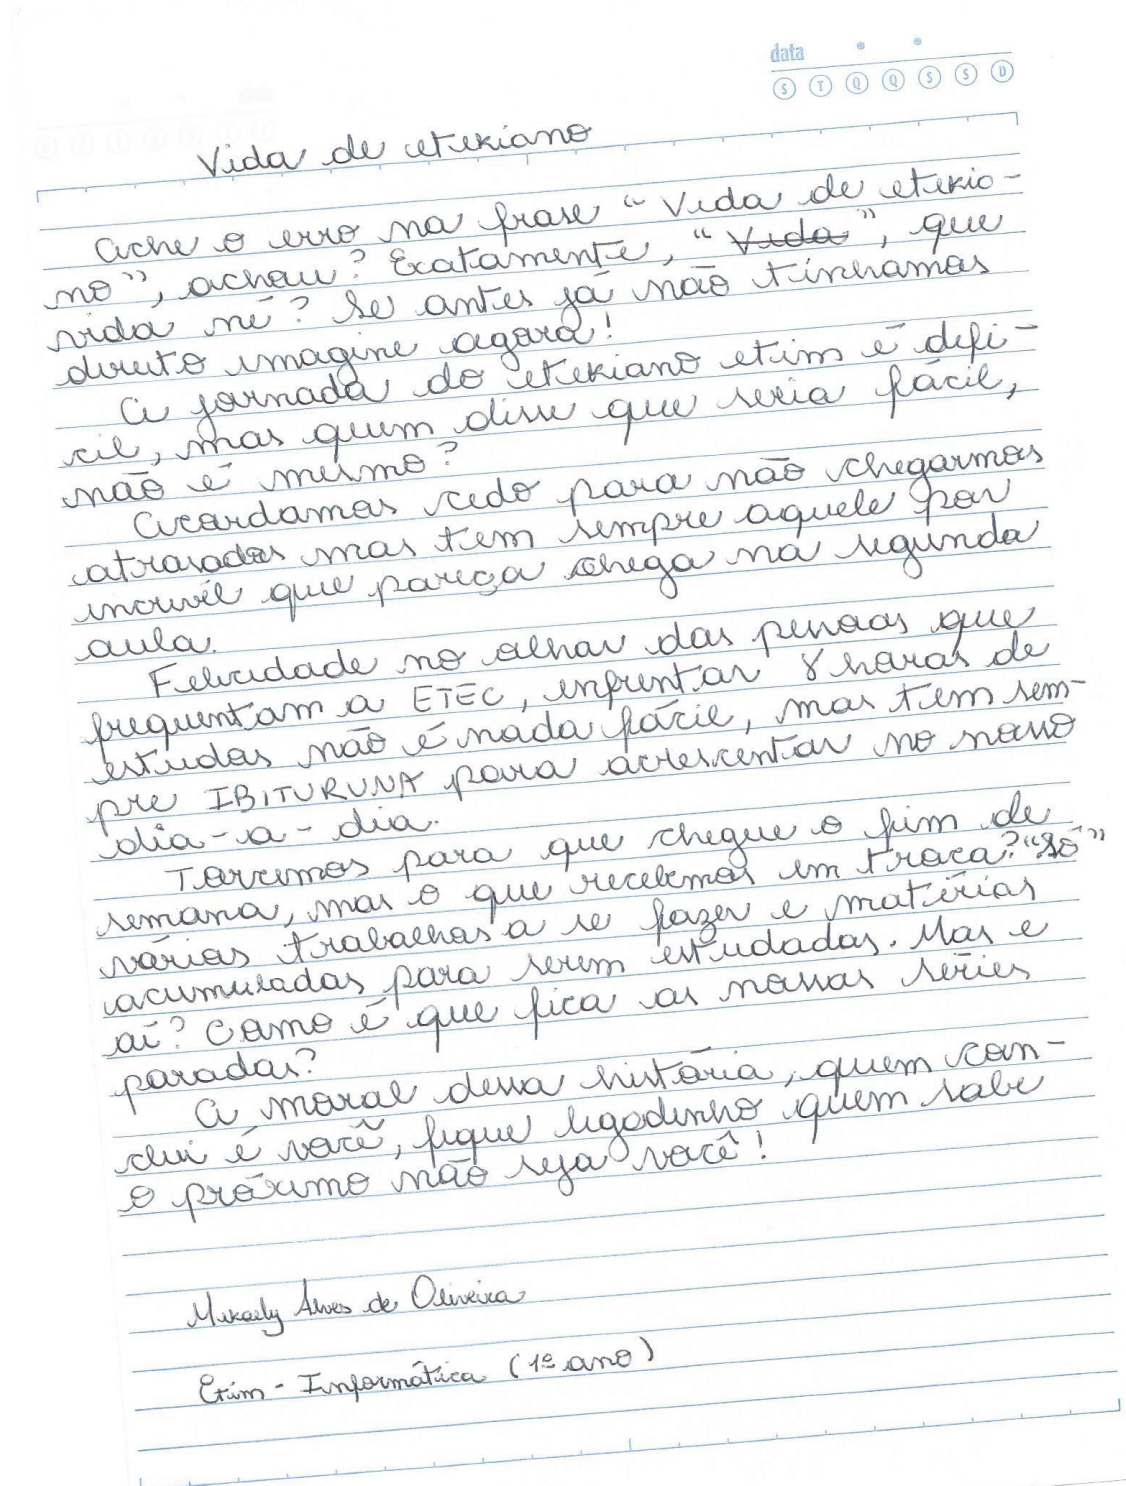 data
S T Q Q S S D
Vida de etekiano
Ache o erro na frase "Vida de etekia-
no", achou? Exatamente, "Vida", que
vida né? Se antes já não tínhamos
direito imagine agora!
A jornada do etekiano etim é difí-
cil, mas quem disse que seria fácil,
não é mesmo?
Acordamos cedo para não chegarmos
atrasados mas tem sempre aquele por
incrivél que pareça chega na segunda
aula.
Felicidade no olhar das pessoas que
frequentam a ETEC, enfrentar 8 horas de
estudos não é nada fácil, mas tem sem-
pre IBITURUNA para acrescentar no nosso
dia-a-dia.
Torcemos para que chegue o fim de
semana, mas o que recebemos em troca? "Só"
várias trabalhos a se fazer e matérias
acumuladas para serem estudadas. Mas e
aí? Como é que fica as nossas séries
paradas?
A moral dessa história, quem con-
clui é você, fique ligadinho quem sabe
o próximo não seja você!
Mikaely Alves de Oliveira
Etim - Informática (1º ano)